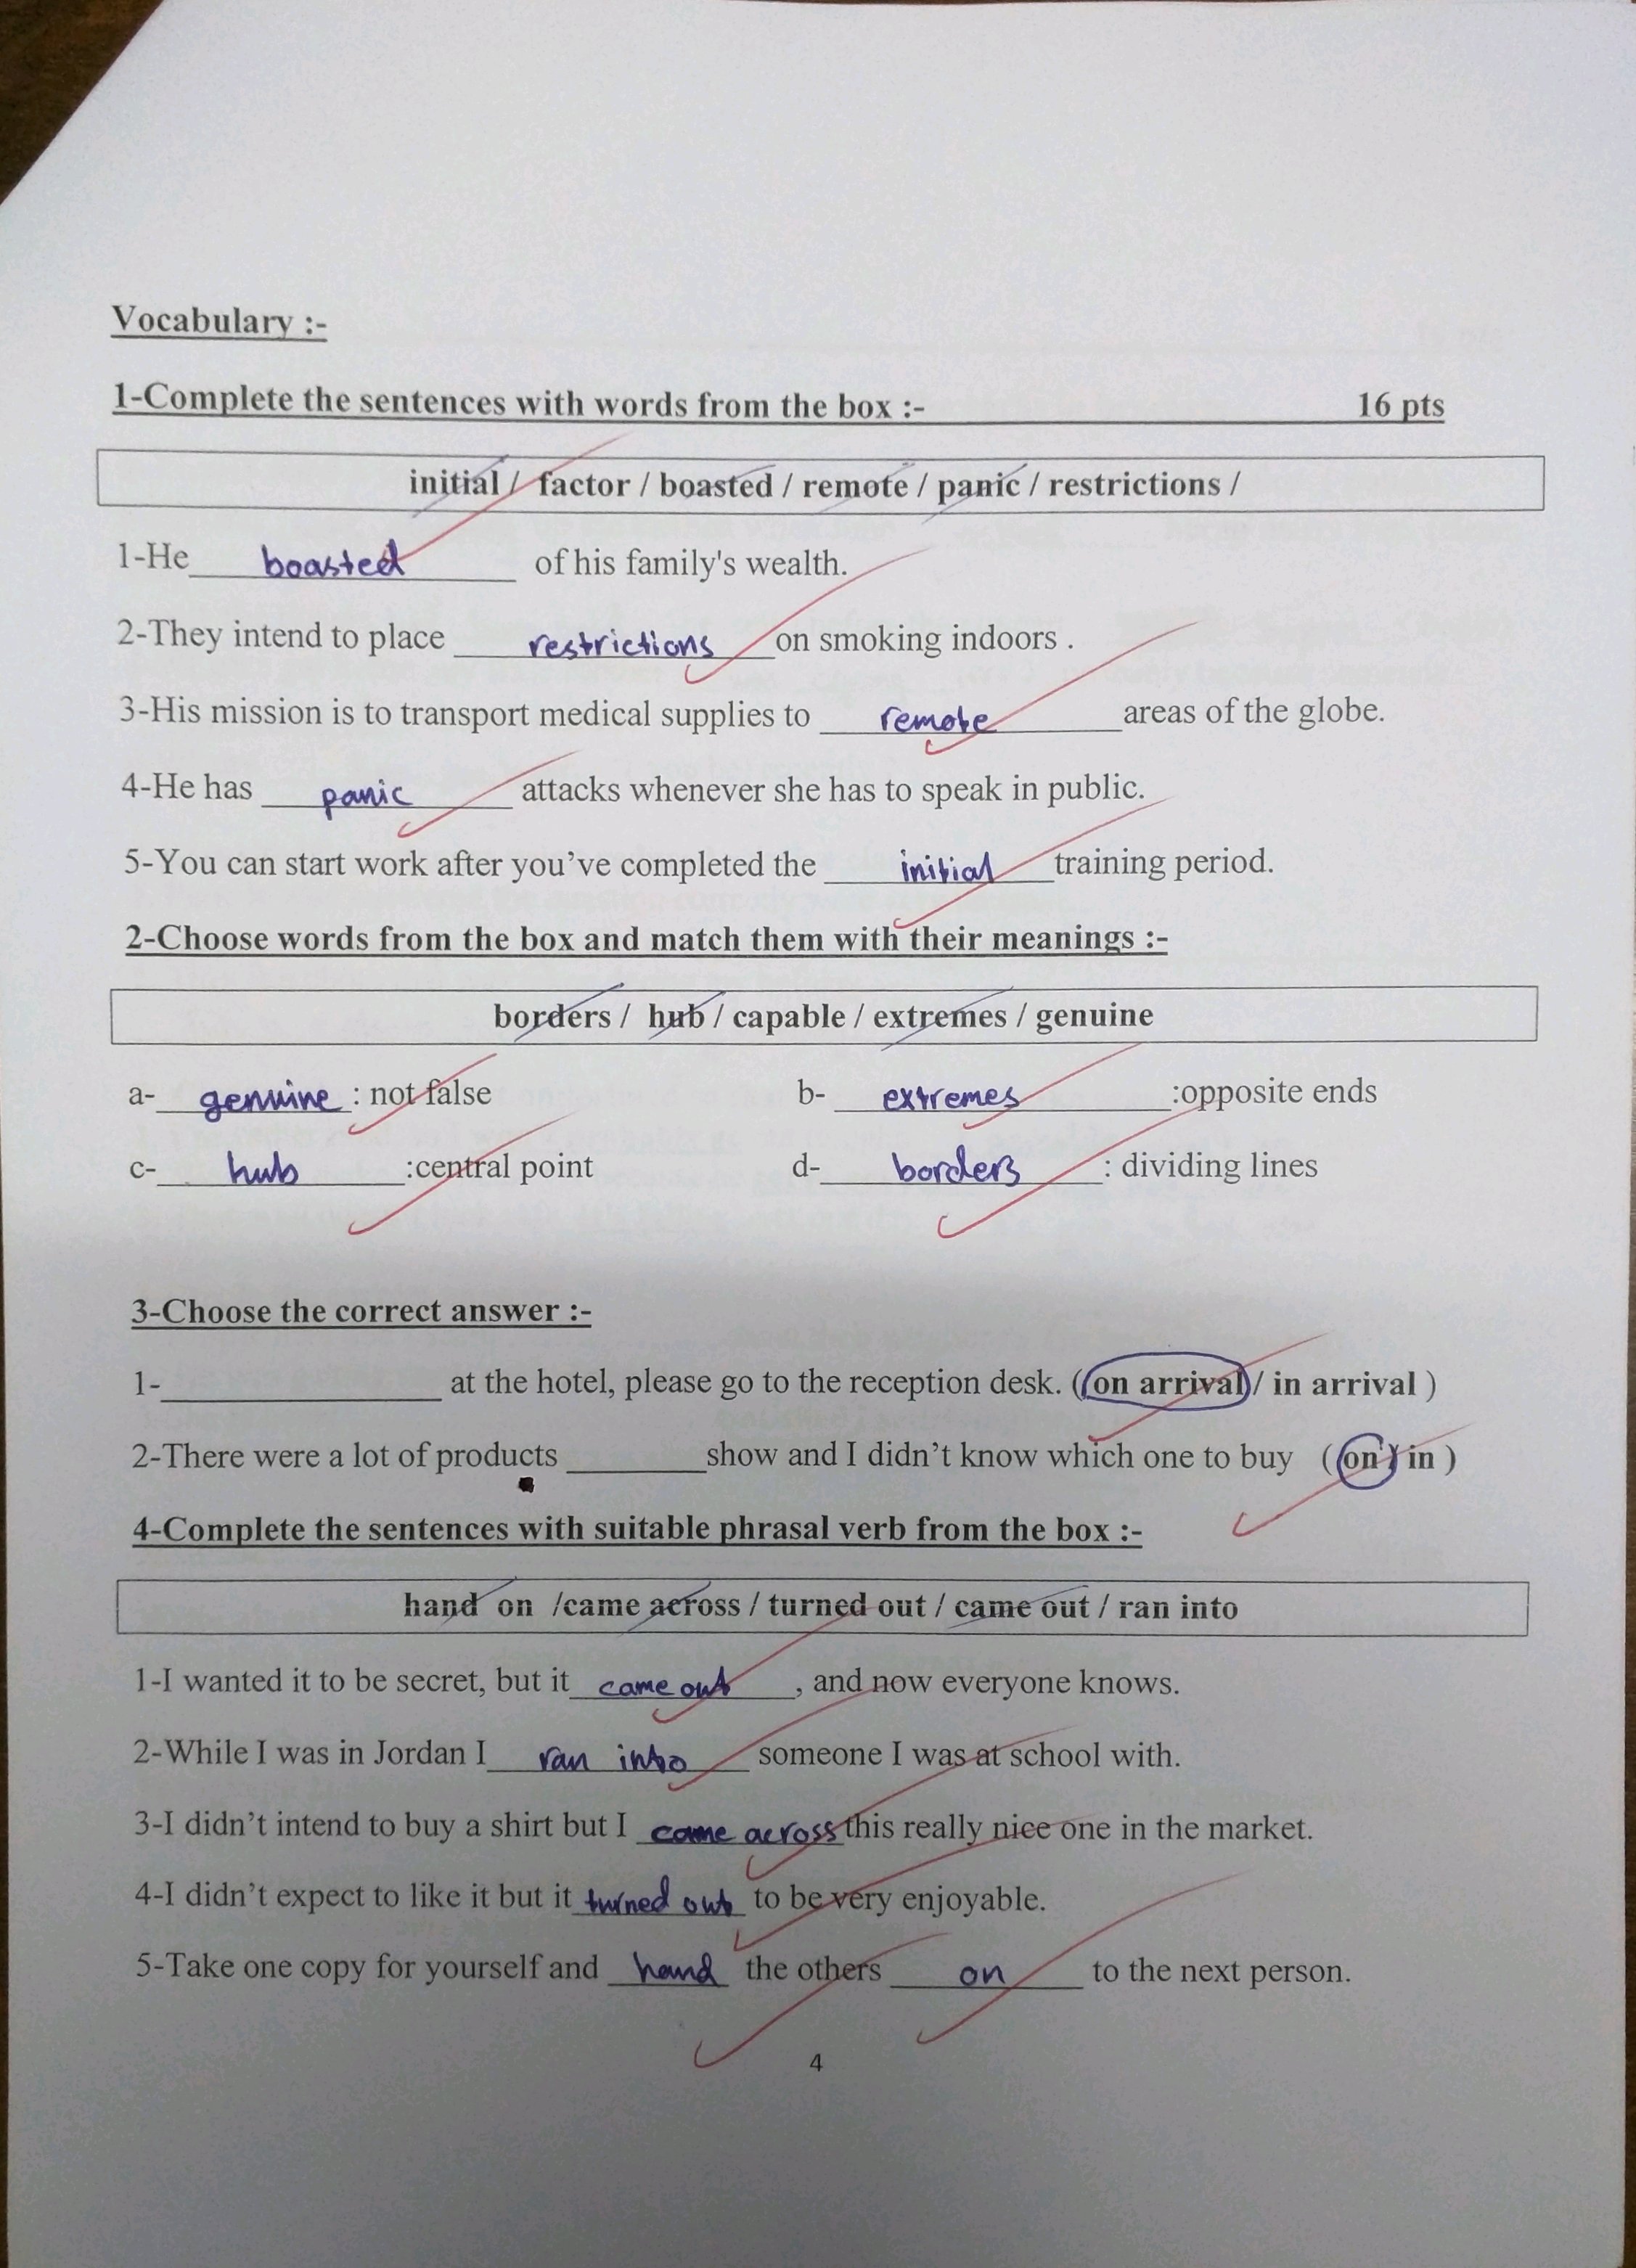 Vocabulary :-
1-Complete the sentences with words from the box :- 16 pts
initial / factor / boasted / remote / panic / restrictions /
1-He boasted of his family's wealth.
2-They intend to place restrictions on smoking indoors .
3-His mission is to transport medical supplies to remote areas of the globe.
4-He has panic attacks whenever she has to speak in public.
5-You can start work after you’ve completed the initial training period.
2-Choose words from the box and match them with their meanings :-
borders / hub / capable / extremes / genuine
a- genuine : not false b- extremes :opposite ends
c- hub :central point d- borders : dividing lines
3-Choose the correct answer :-
1-______________ at the hotel, please go to the reception desk. (on arrival / in arrival )
2-There were a lot of products _______ show and I didn’t know which one to buy ( on / in )
4-Complete the sentences with suitable phrasal verb from the box :-
hand on /came across / turned out / came out / ran into
1-I wanted it to be secret, but it came out , and now everyone knows.
2-While I was in Jordan I ran into someone I was at school with.
3-I didn’t intend to buy a shirt but I came across this really nice one in the market.
4-I didn’t expect to like it but it turned out to be very enjoyable.
5-Take one copy for yourself and hand the others on to the next person.
4